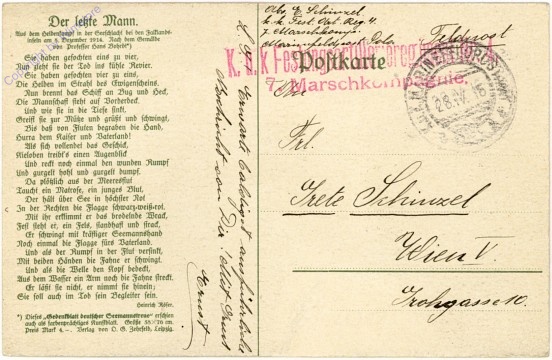 Der letzte Mann.
Aus dem Heldenkampf in der Seeschlacht bei den Falklands-
inseln am 8. Dezember 1914. Nach dem Gemälde
von Professor Hans Bohrdt*)
Sie haben gefochten eins zu vier,
Nun zieht sie der Tod ins kühle Revier.
Sie haben gefochten vier zu eins,
Die Helden im Strahl des Ewigenscheins.
Nun brennt das Schiff an Bug und Heck,
Die Mannschaft steht auf Vorderdeck
Und wie sie in die Tiefe sinkt.
Greift sie zur Mütze und grüßt und schwingt,
Bis daß von Fluten begraben die Hand,
Hurra dem Kaiser und Vaterland!
Als sich vollendet das Geschick,
Kieloben treibt's einen Augenblick
Und reckt noch einmal den wunden Rumpf
Und gurgelt hohl und gurgelt dumpf.
Da plötzlich aus der Meeresflut
Taucht ein Matrose, ein junges Blut,
Der hält über See in höchster Not
In der Rechten die Flagge schwarz-weiß-rot.
Mit ihr erklimmt er das brodelnde Wrack,
Fest steht er, ein Fels, sandhaft und strack,
Er schwingt mit kräftiger Seemannshand
Noch einmal die Flagge fürs Vaterland.
Und als der Rumpf in der Flut versinkt,
Mit beiden Händen die Fahne er schwingt,
Und als die Welle den Kopf bedeckt,
Aus dem Wasser ein Arm noch die Fahne streckt.
Er läßt sie nicht, er nimmt sie hinein;
Sie soll auch im Tod sein Begleiter sein.
Heinrich Röser.
*) Dieses „Gedenkblatt deutscher Seemannstreue" erschien
auch als farbenprächtiges Kunstblatt. Größe 58/76 cm
Preis Mark 4,—. Verlag von O. G. Zehrfeld, Leipzig.
L. G. Erwarte baldigst ausführliche
Nachricht von Dir. Mit Gruß
Ernst
E. Schinzel
k. k. Fest. Art. Reg. 4.
7. Marschkomp.
Marinefeldpost Pola
Feldpost
K. u. k. Festungsartillerieregiment Nr. 4
7. Marschkompagnie.
Postkarte
An
Frl.
Grete Schinzel
Wien V.
Krongasse 10.